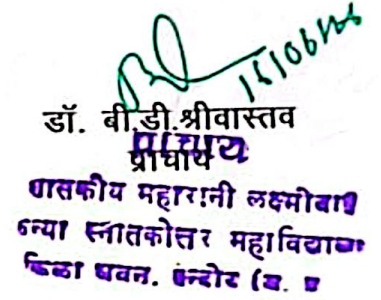 15/06/26
डॉ. बी.डी.श्रीवास्तव
प्राचार्य
प्राचार्य
शासकीय महारानी लक्ष्मीबाई
कन्या स्नातकोत्तर महाविद्यालय
किला भवन, इन्दौर (म. प्र